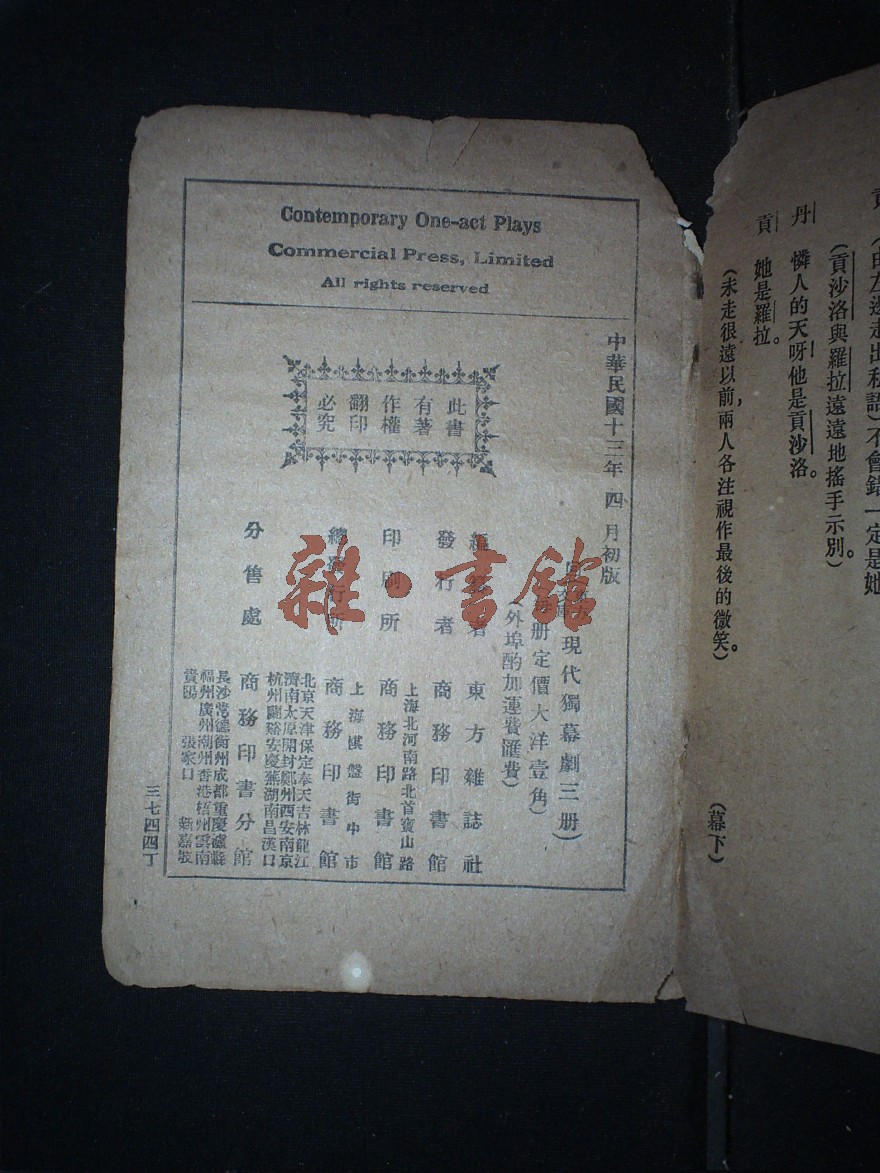 Contemporary One-act Plays
Commercial Press, Limited
All rights reserved
中華民國十三年四月初版
此書
有著
作權
翻印
必究
現代獨幕劇三册)
每册定價大洋壹角)
(外埠酌加運費匯費)
編纂者 東方雜誌社
發行者 商務印書館
上海北河南路北首寶山路
印刷所 商務印書館
上海棋盤街中市
總發行所 商務印書館
北京天津保定奉天吉林龍江
濟南太原開封鄭州西安南京
杭州蘭谿安慶蕪湖南昌漢口
分售處 商務印書分館
長沙常德衡州成都重慶瀘縣
福州廣州潮州香港梧州雲南
貴陽 張家口 新嘉坡
三七四四丁
雜·書館
(由左邊走出私語)不會錯一定是她
(貢沙洛與羅拉遠遠地搖手示別)
丹 憐人的天呀!他是貢沙洛。
貢 她是羅拉。
(未走很遠以前,兩人各注視作最後的微笑。)
(幕下)